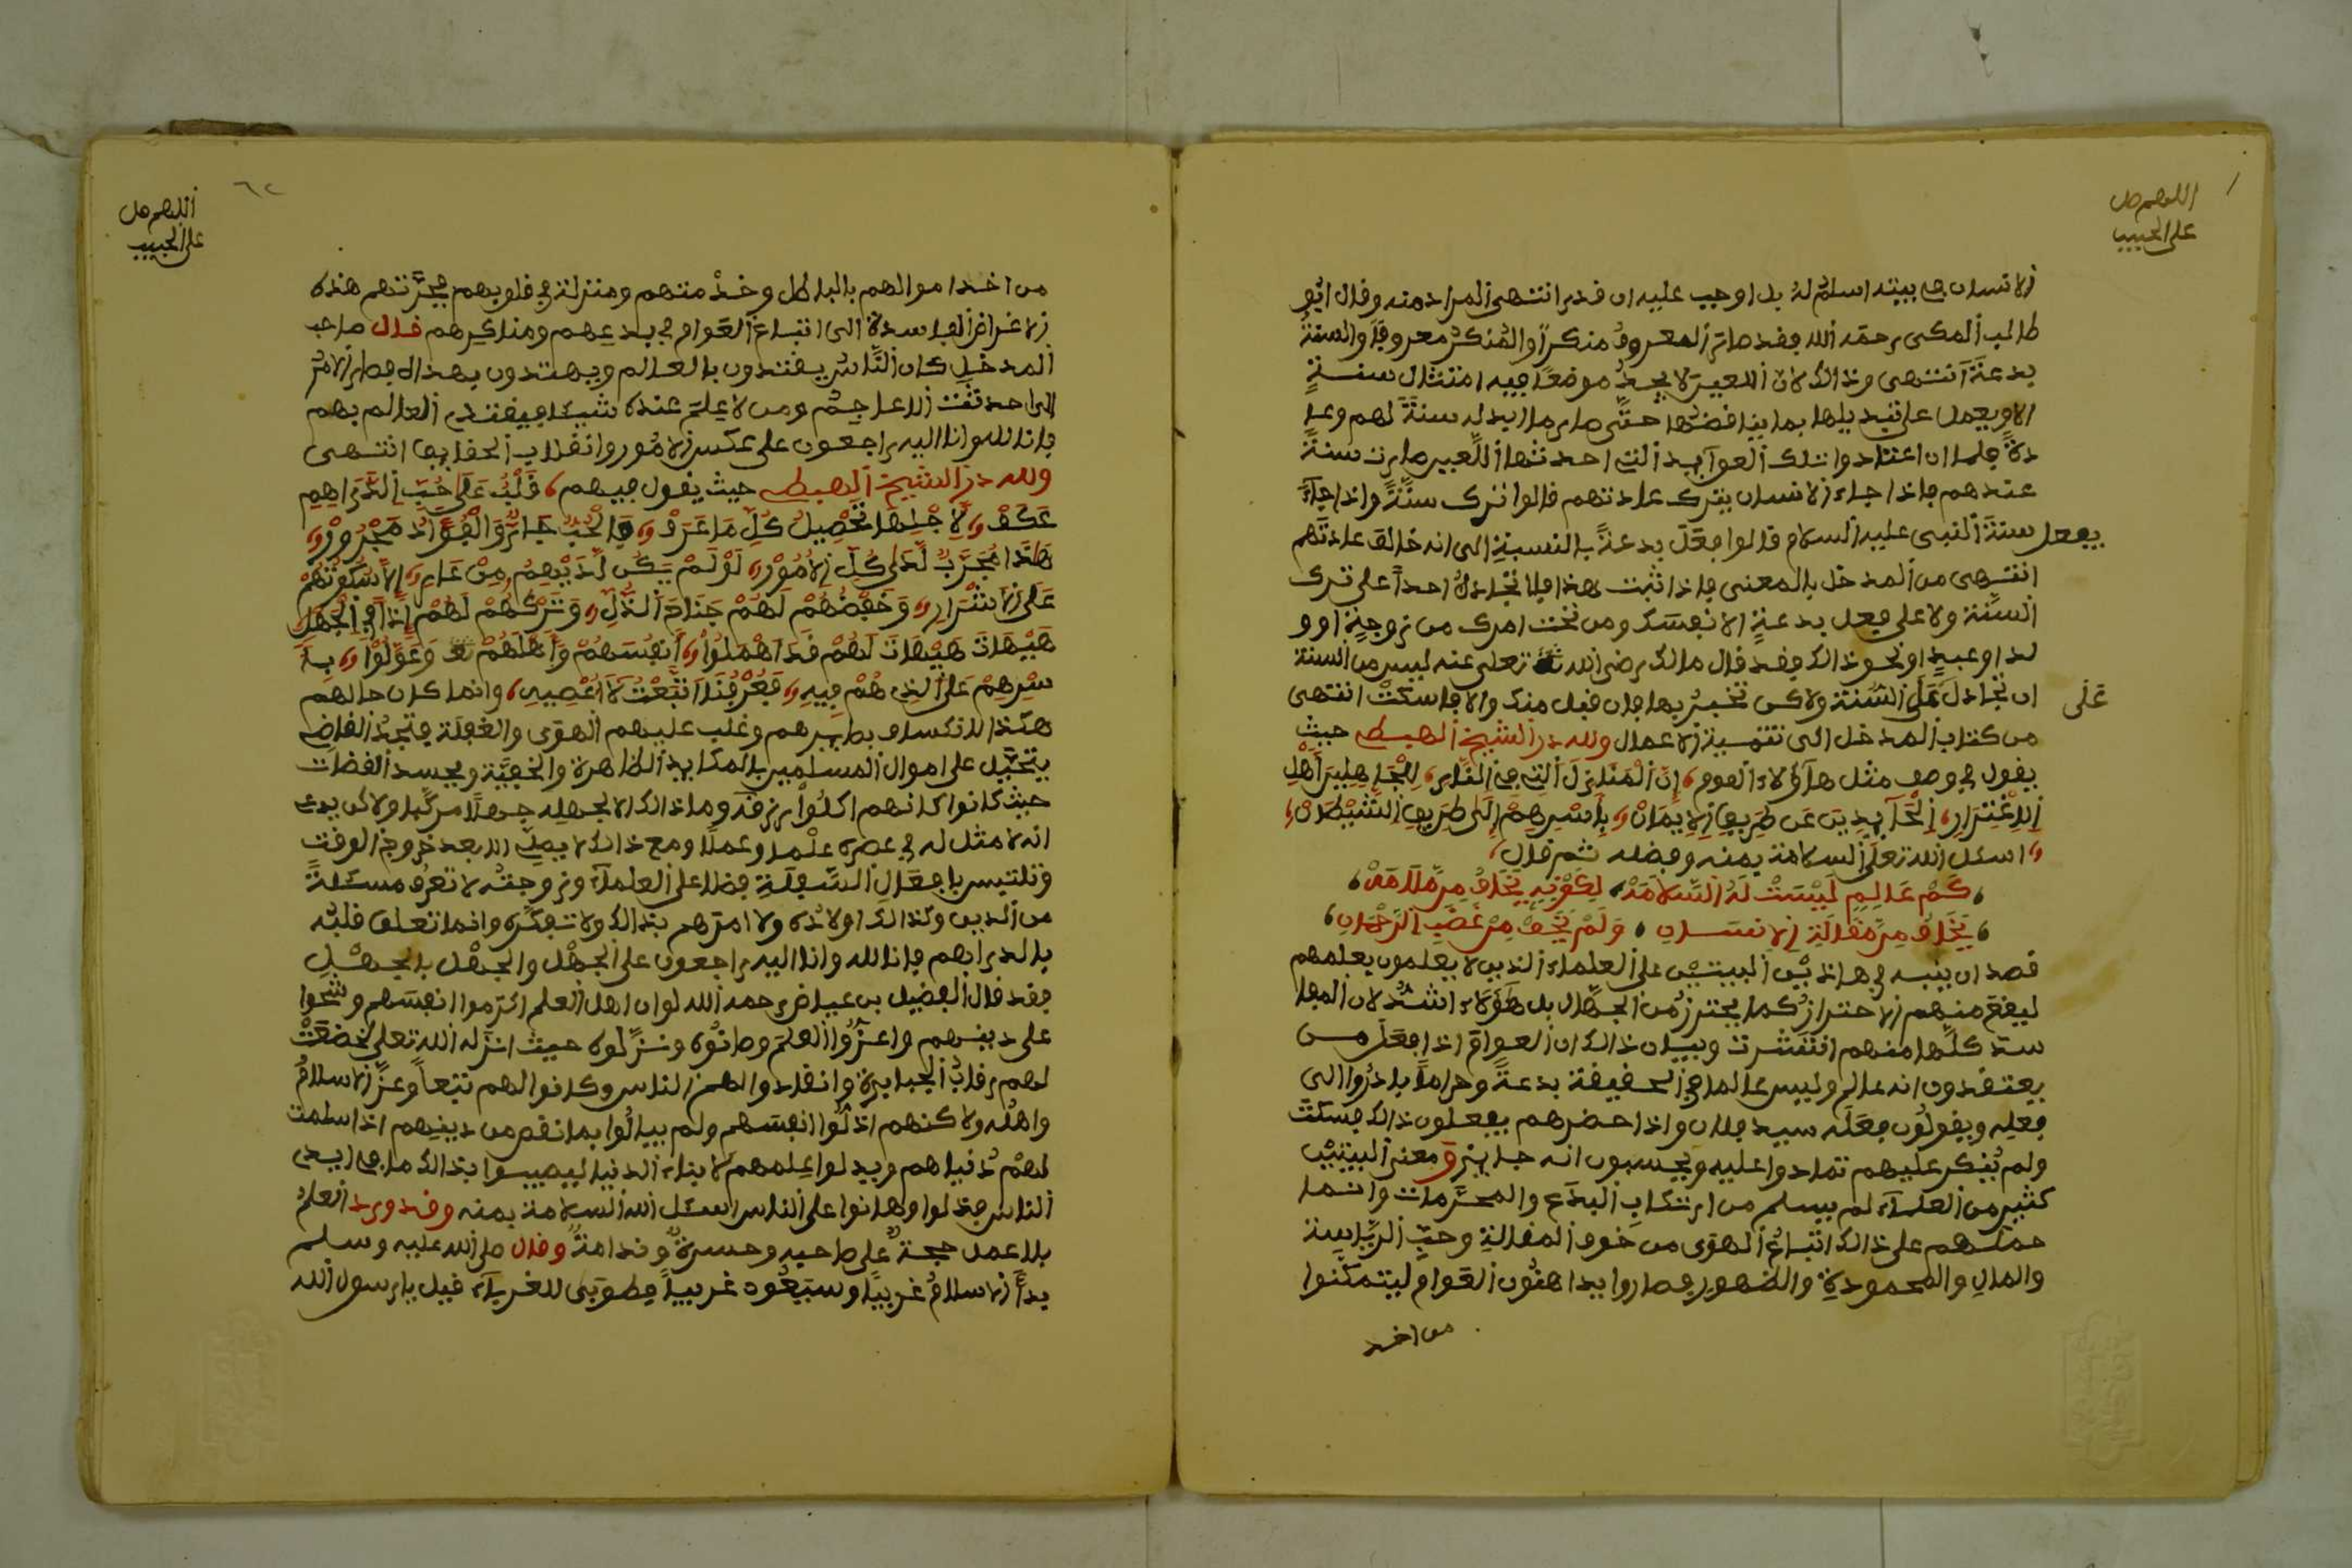 اللهم صل
على الحبيب
الانسان في بيته اسلم له بل اوجب عليه ان قدر انتهى المراد منه وقال ابو
طالب المكي رحمه الله فقد صار المعروف منكرا والمنكر معروفا والسنة
بدعة انتهى وذالك لان اللعين لا يجد موضعا فيه امتثال سنة
الا ويعمل على تبديلها بما يناقضها حتى صار ما ابدله سنة لهم وعا
دة فلما ان اعتادوا تلك العوائد التي احدثها اللعين صارت سنة
عندهم فاذا جاء الانسان يترك عادتهم قالوا ترك سنة واذا جاء
يفعل سنة النبي عليه السلام قالوا فعل بدعة بالنسبة الى انه خالف عادتهم
انتهى من المدخل بالمعنى فاذا ثبت هذا فلا تجادل احدا على ترك
السنة ولا على فعل بدعة الا نفسك ومن تحت امرك من زوجة او و
لد او عبد او نحو ذالك فقد قال مالك رضي الله تعلى عنه ليس من السنة
ان تجادل على السنة ولاكن تخبر بها فان قبل منك والا فاسكت انتهى
على
من كتاب المدخل الى تتمية الاعمال ولله در الشيخ الهبطي حيث
يقول في وصف مثل هاؤلاء القوم، ان المنازل التي في النار، للجاهلين اهل
الاغترار، الحائدين عن طريق الايمان، باسرهم الى طريق الشيطان،
اسئل الله تعلى السلامة بمنه وفضله ثم قال،
كم عالم ليست له السلامه، لكونه يخاف من ملامه،
يخاف من مقالة الانسان، ولم يخف من غضب الرحمان،
قصد ان ينبه في هاذين البيتين على العلماء الذين لا يعملون بعلمهم
ليقع منهم الاحتراز كما يحترز من الجهال بل هؤلاء اشد لان المفا
سد كلها منهم انتشرت وبيان ذالك ان العوام اذا فعل من
يعتقدون انه عالم وليس عالما في الحقيقة بدعة وحراما بادروا الى
فعله ويقولون فعله سيد فلان واذا حضرهم يفعلون ذالك فسكت
ولم ينكر عليهم تمادوا عليه ويحسبون انه جائز ومعنى البيتين
كثير من العلماء لم يسلم من ارتكاب البدع والمحرمات وانما
حملهم على ذالك اتباع الهوى من خوف المقالة وحب الرياسة
والمال والمحمودة والظهور فصاروا يداهنون العوام ليتمكنوا
من اخذ
٦٢
اللهم صل
على الحبيب
من اخذ اموالهم بالباطل وخذ منهم ومنزلة في قلوبهم فجرتهم هذه
الاغراض الفاسدة الى اتباع العوام في بدعهم ومناكيرهم قال صاحب
المدخل كان الناس يقتدون بالعالم ويهتدون بهداه فصار الامر
الى احدثت الاعاجم ومن لا علم عنده شيئا فيقتدي العالم بهم
فانا لله وانا اليه راجعون على عكس الامور وانقلاب الحقايق انتهى
ولله در الشيخ الهبطي حيث يقول فيهم، قلب على حب الدراهم
عكف، لاجلها تحصيل كل ما عرف، فالحب جائر والفؤاد مجرور،
هذا مجرب لدى كل الامور، لو لم يكن لديهم من عار، الا سكوتهم
على الاشرار، وخفضهم لهم جناح الذل، وتركهم لهم اذا في الجهل
هيهات هيهات لهم قد اهملوا، انفسهم واهلهم وعولوا، با
سرهم على الذي هم فيه، فعرفنا اتبعت لا اعصيه، وانما كان حالهم
هكذا لانكساف بصايرهم وغلب عليهم الهوى والغفلة فتجد القاضي
يتحيل على اموال المسلمين بالمكايد الظاهرة والخفية ويحسد القضات
حيث كانوا كانهم اكلوا رزقه وما ذالك الا لجهله جهلا مركبا ولاكن يدعي
انه لا مثل له في عصره علما وعملا ومع ذالك لا يصلي الا بعد خروج الوقت
وتلتبس بافعال السفلة فضلا على العلماء وزوجته لا تعرف مسئلة
من الدين وكذالك اولاده ولا امرهم بذالك ولا تفكره وانما تعلق قلبه
بالدراهم فانا لله وانا اليه راجعون على الجهل والجهل بالجهل
فقد قال الفضيل بن عياض رحمه الله لو ان اهل العلم اكرموا انفسهم وشحوا
على دينهم واعزوا العلم وصانوه ونزلوه حيث انزله الله تعلى لخضعت
لهم رقاب الجبابرة وانقاد والهم الناس وكانوا لهم تبعا وعز الاسلام
واهله ولاكنهم اذلوا انفسهم ولم يبالوا بما نقص من دينهم اذا سلمت
لهم دنياهم وبدلوا علمهم لابناء الدنيا ليصيبوا بذالك ما في ايدي
الناس فذلوا وهانوا على الناس اسئل الله السلامة بمنه وقد ورد العلم
بلا عمل حجة على صاحبه وحسرة وندامة وقال صلى الله عليه وسلم
بدأ الاسلام غريبا وسيعود غريبا فطوبى للغرباء قيل يا رسول الله